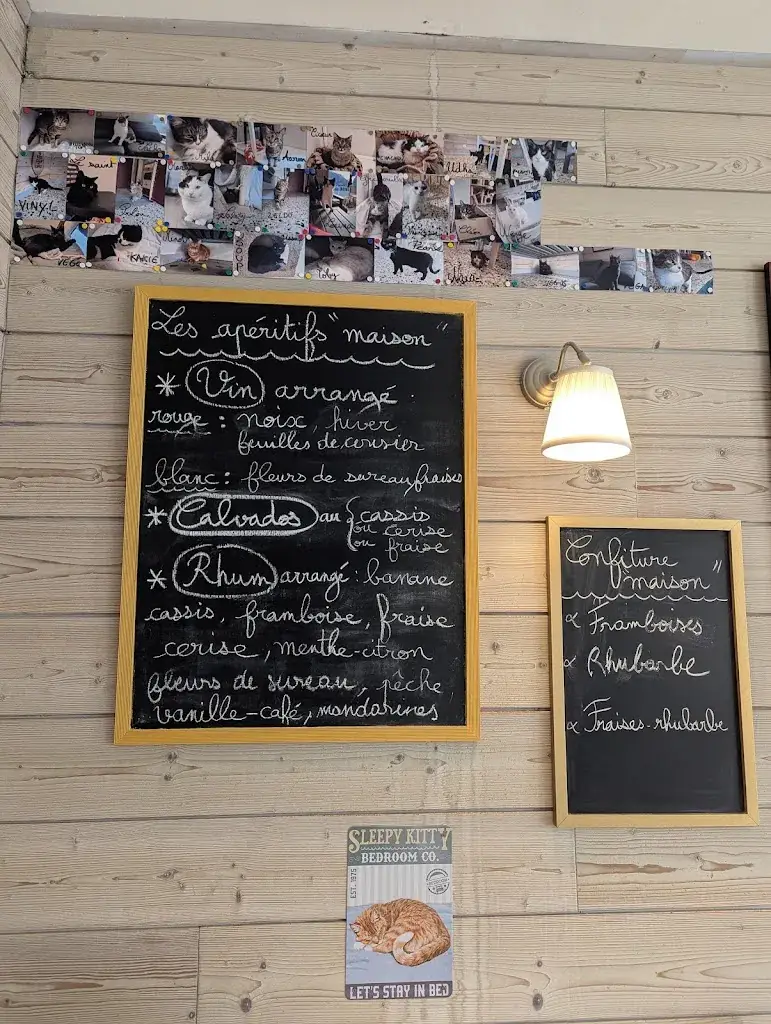 VINYL
KAKIE
Les apéritifs "maison"
* Vin arrangé.
rouge : noix, hiver
feuilles de cerisier
blanc : fleurs de sureau, fraises
* Calvados au { cassis
ou cerise
ou fraise
* Rhum arrangé : banane
cassis, framboise, fraise
cerise, menthe-citron
fleurs de sureau, pêche
vanille-café, mandarines
Confiture
"maison"
Framboises
Rhubarbe
Fraises-rhubarbe
SLEEPY KITTY
BEDROOM CO.
EST. 1975
LET'S STAY IN BED